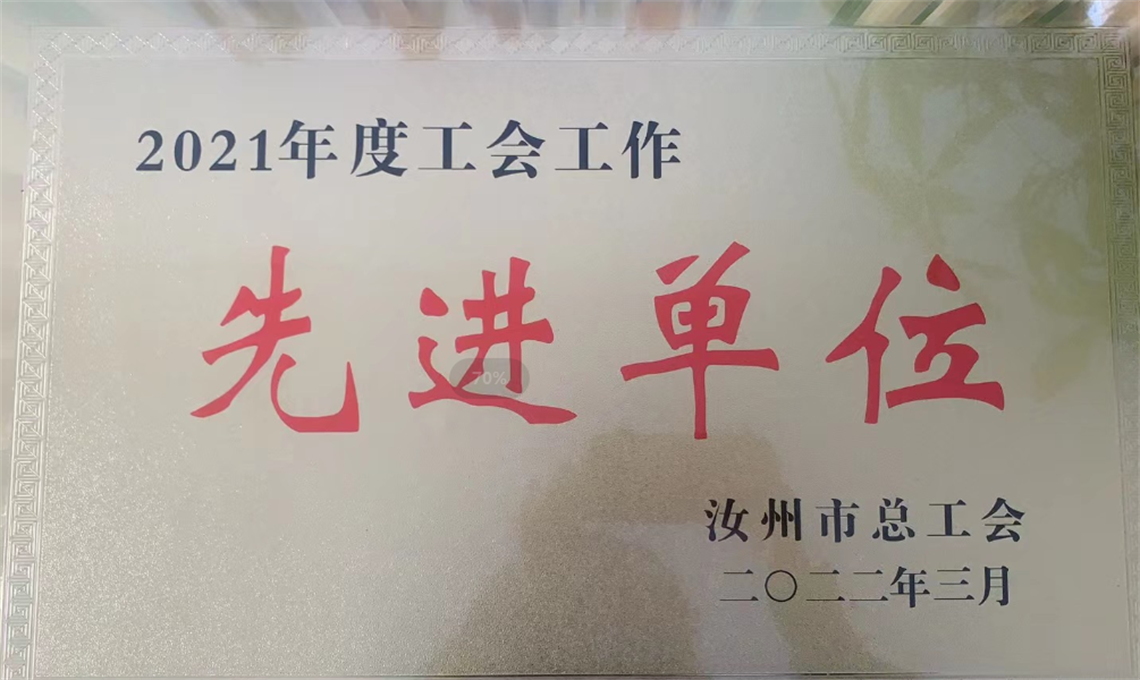 2021年度工会工作
先进单位
70%
汝州市总工会
二〇二二年三月